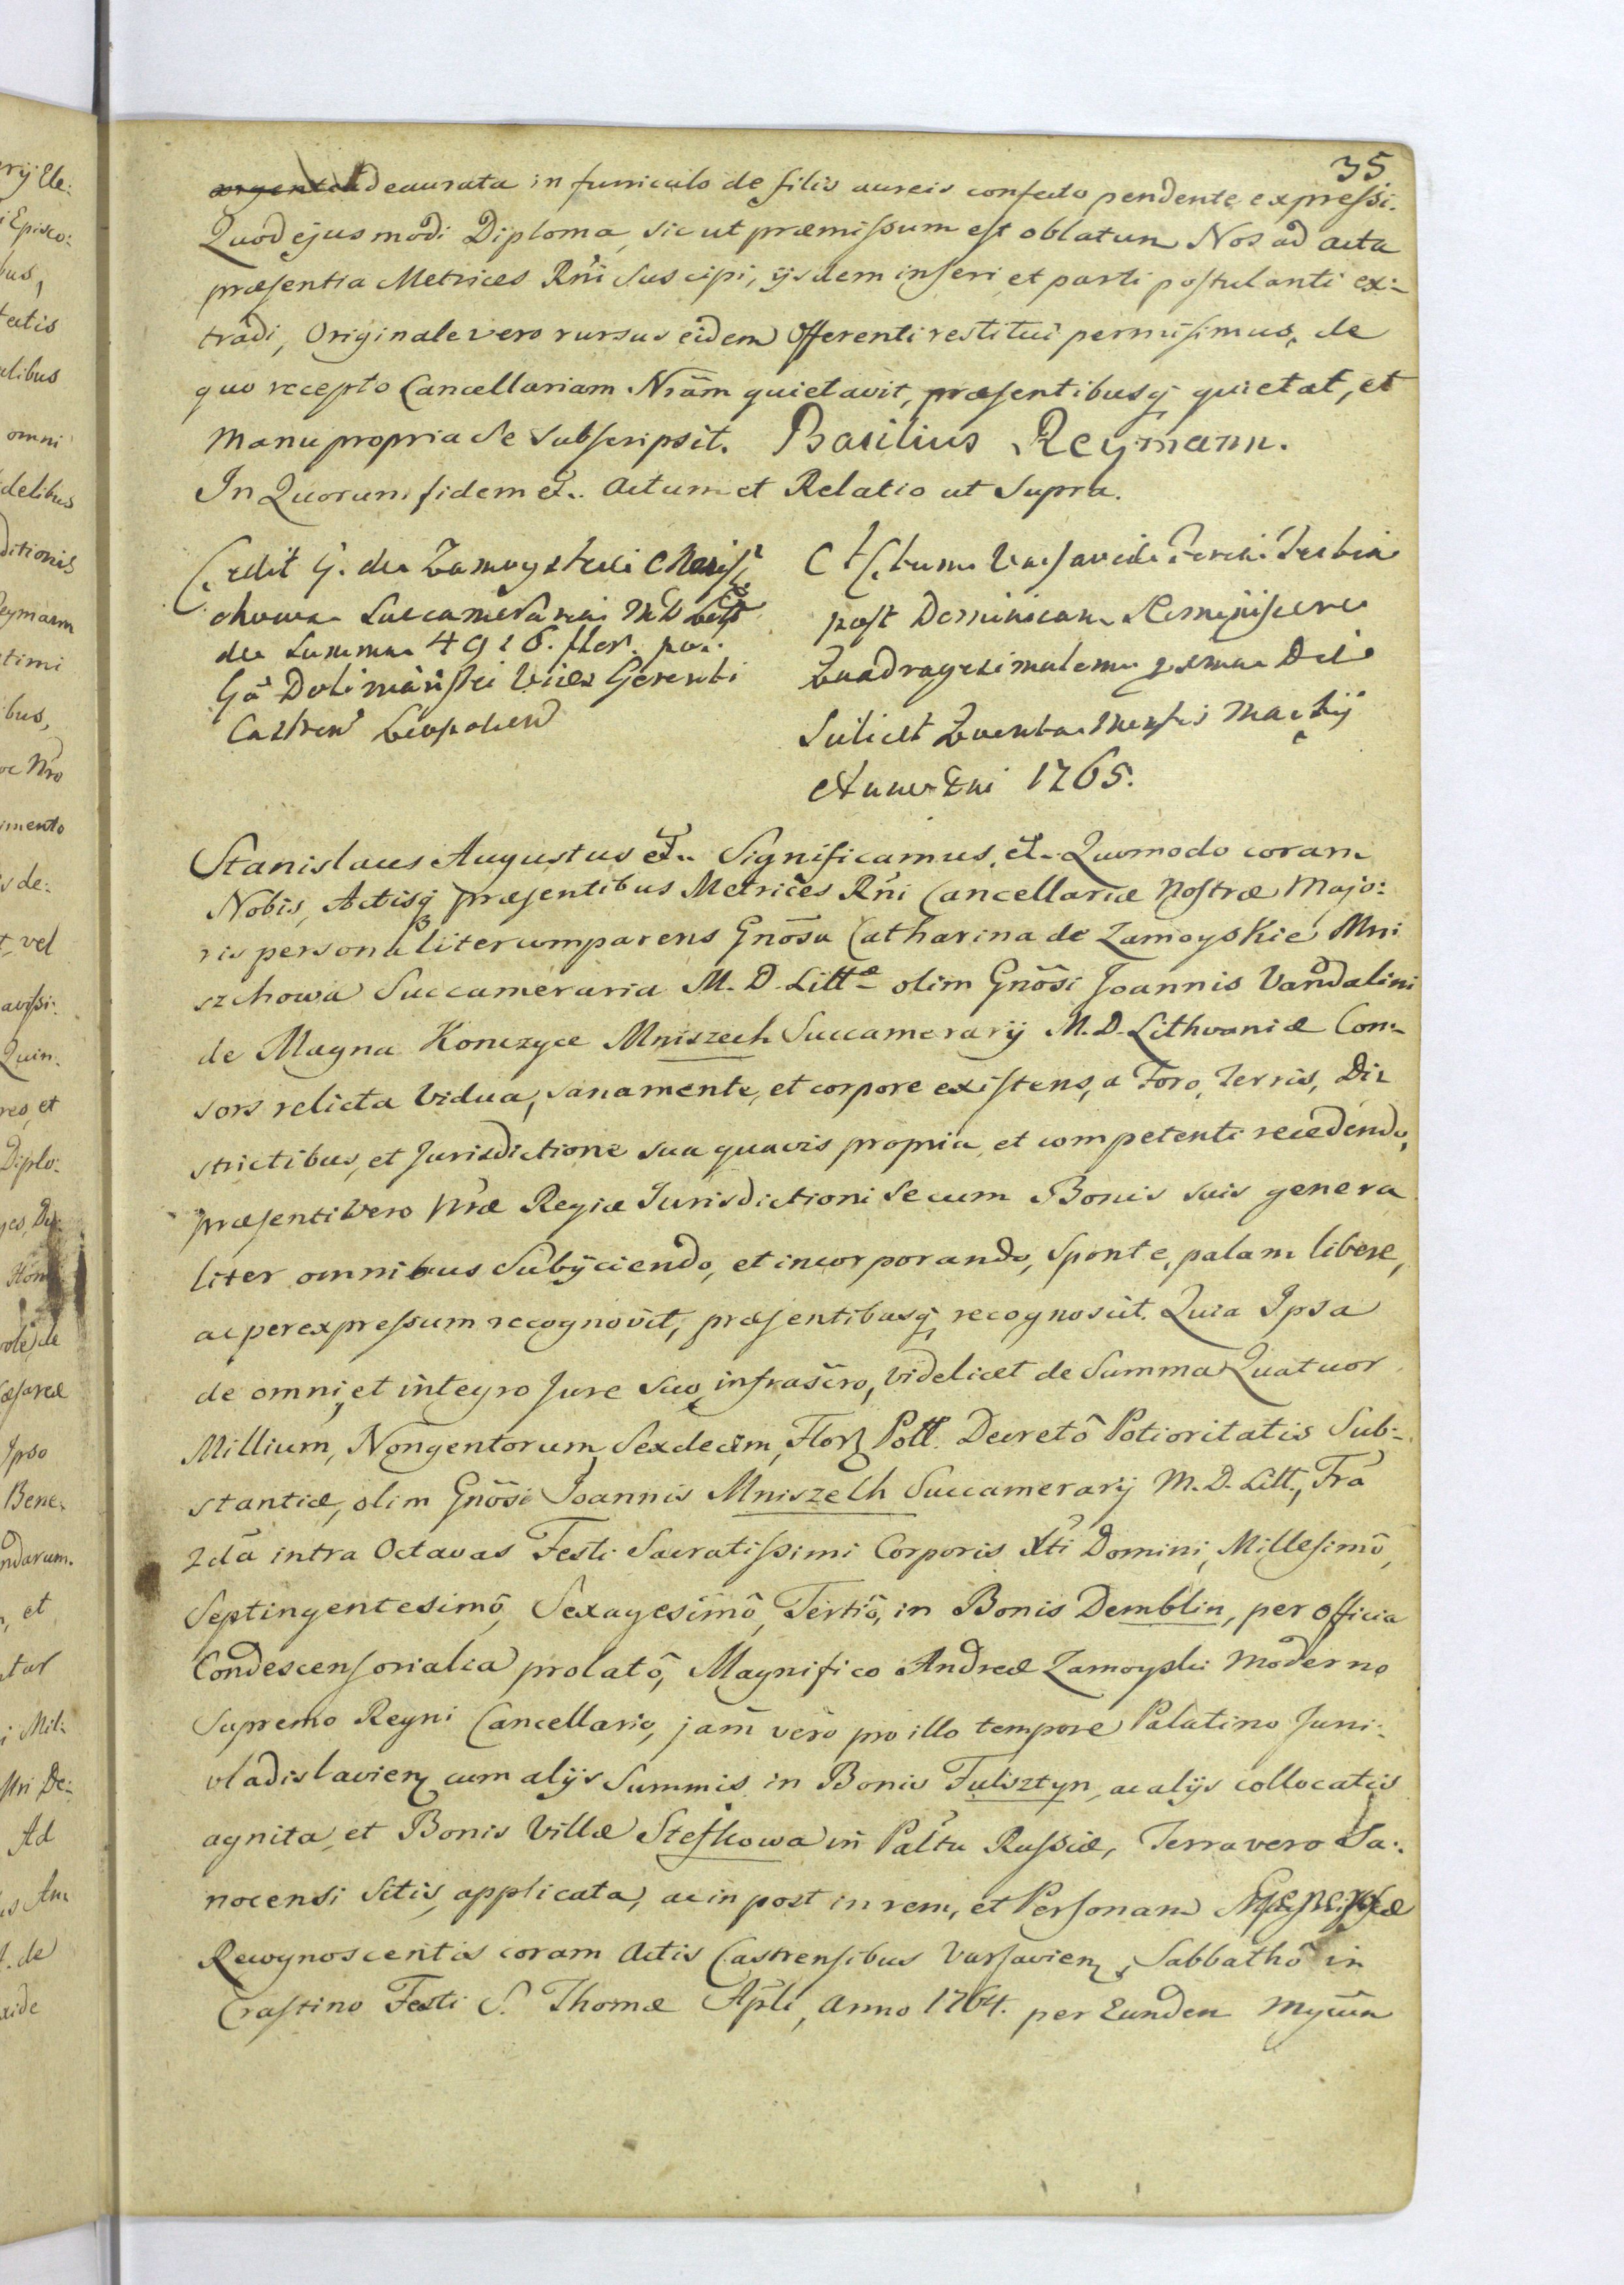 35
deaurata in funiculo de filis aureis confecto pendente expressi.
Quod ejusmodi Diploma, sicut præmissum est oblatum Nos ad acta
præsentia Metrices Rñi suscipi, ijsdem inseri et parti postulanti ex:
tradi, Originale vero rursus eidem Offerenti restitui permisimus, de
quo recepto Cancellariam Nrãm quietavit, præsentibusq quietat, et
manu propria se subscripsit. Basilius Reymann.
In Quorum fidem et. Actum et Relatio ut supra.
Cedit G. de Zamoyskie Mnisz
chowa Succameraria M D Litt
de Summa 4916. flor. pol.
Gō Dolimański Vices Gerenti
Castren Leopolien
Actum Varsaviæ Feria Tertia
post Dominicam Reminiscere
Quadragesimalem proxima Die
Scilicet Quinta Mensis Martij
Anno Dni 1765.
Stanislaus Augustus et. Significamus, et. Quomodo coram
Nobis, Actisq præsentibus Metrices Rñi Cancellariæ Nostræ Majo:
ris personaliter comparens Gnōsa Catharina de Zamoyskie Mni
szchowa Succameraria M. D. Littæ olim Gnōsi Joannis Vandalini
de Magna Konczyce Mniszech Succamerarij M. D. Lithvaniæ Con:
sors relicta Vidua, sana mente, et corpore existens, a Foro, Terris, Di:
strictibus, et Jurisdictione sua quavis propria et competenti recedendo,
præsenti vero Nræ Regiæ Jurisdictioni se cum Bonis suis genera
liter omnibus subijciendo, et incorporando, Sponte, palam libere,
ac per expressum recognovit, præsentibusq recognoscit. Quia Ipsa
de omni, et integro Jure suo infrascro, videlicet de Summa Quatuor
Millium, Nongentorum Sexdecim, Flor Poll. Decretô Potioritatis Sub:
stantiæ, olim Gnōsi Joannis Mniszech Succamerarij M. D. Litt., Fra
2da intra Octavas Festi Sacratissimi Corporis Xti Domini, Millesimô,
Septingentesimô, Sexagesimô, Tertiô, in Bonis Demblin, per Officia
Condescensorialia prolatô, Magnifico Andreæ Zamoyski moderno
Supremo Regni Cancellario, jam vero pro illo tempore Palatino Juni:
vladislavien cum alijs Summis in Bonis Fulsztyn, ac alijs collocatis
agnita, et Bonis Villæ Stefkowa in Paltu Russiæ, Terra vero Sa:
nocensi sitis, applicata, ac in post in rem, et Personam
Recognoscentis coram Actis Castrensibus Varsavien, Sabbathô in
Crastino Festi S. Thomæ Apli, Anno 1764. per Eunden Mgcum